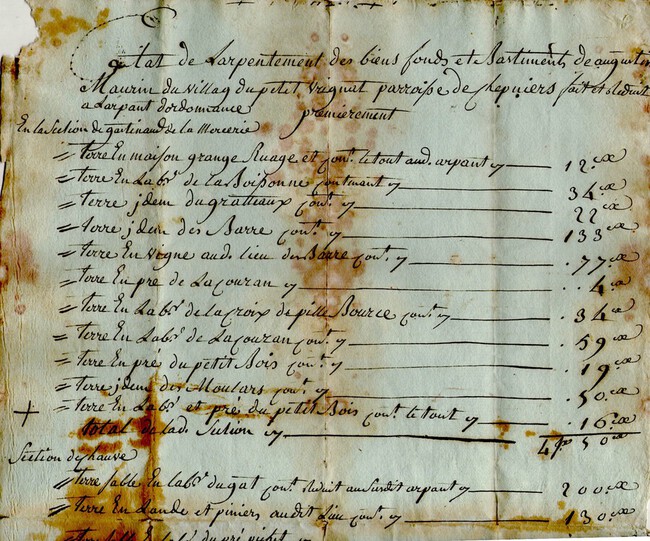 Etat de Larpentement des biens fonds et Bastiments de augustin
Maurin du villag du petit vrignat parroisse de chepniers fait et Reduit
a Larpant dordonnance premierement
En la Section de gastinaud de la Mercerie
= terre En maison grange Ruage et cont. le tout aud. arpant y 12.ce
= terre En Lab.r de la Boissonne contenant y 34.ce
= terre jdem du gratteaux cont. y 22.ce
= terre jdem des Barre cont. y 133.ce
= terre En vigne aud. lieu des Barre cont. y .77.ce
= terre En pré de La couzan y .4.ce
= terre En Lab.r de la croix de pille Bource cont. y .34.ce
= terre En Lab.r de La couzan cont. y .59.ce
= terre En prés du petit Bois cont. y .19.ce
= terre jdem des Moulars cont. y .50.ce
+ = terre En Lab.r et prés du petit Bois cont. le tout y .16.ce
total de lad. Section y 4 50.ce
Section de chauve
= terre sable En lab.r du gat cont. Reduit au Susdit arpant y 200.ce
= terre En Lande et piniers au dit Lieu cont. y 130.ce